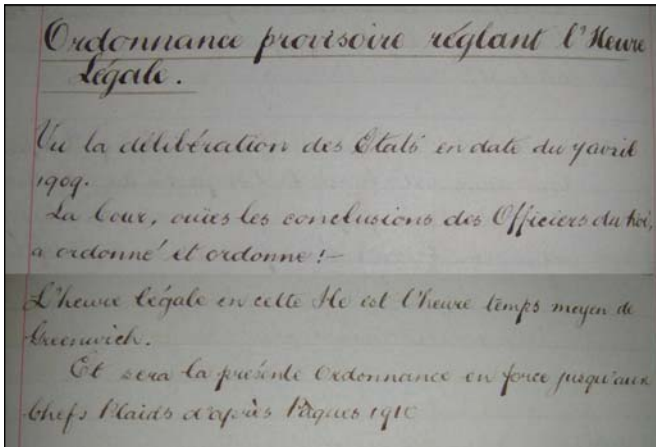 Ordonnance provisoire réglant l'Heure
Légale.
Vu la délibération des Etats en date du 7 avril
1909.
La Cour, ouïes les conclusions des Officiers du Roi,
a ordonné et ordonne :—
L'heure légale en cette Ile est l'heure temps moyen de
Greenwich.
Et sera la présente Ordonnance en force jusqu'aux
Chefs Plaids d'après Pâques 1910